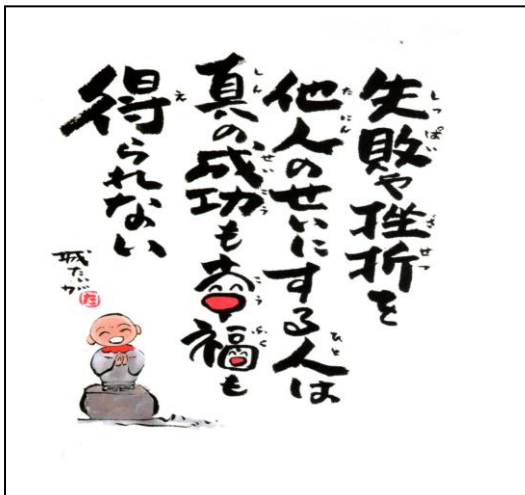 失敗や挫折を
他人のせいにする人は
真の成功も幸福も
得られない
城たいが